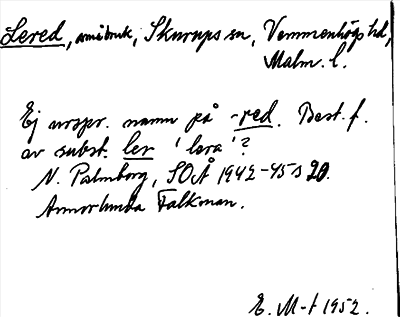 Lered, småbruk, Skurups sn, Vemmenhögs hd,
Malm. l.
Ej urspr. namn på -red. Best. f.
av subst. ler 'lera'?
N. Palmborg, SOÅ 1942-45 s 20.
Annorlunda Falkman.
E. M-t 1952.